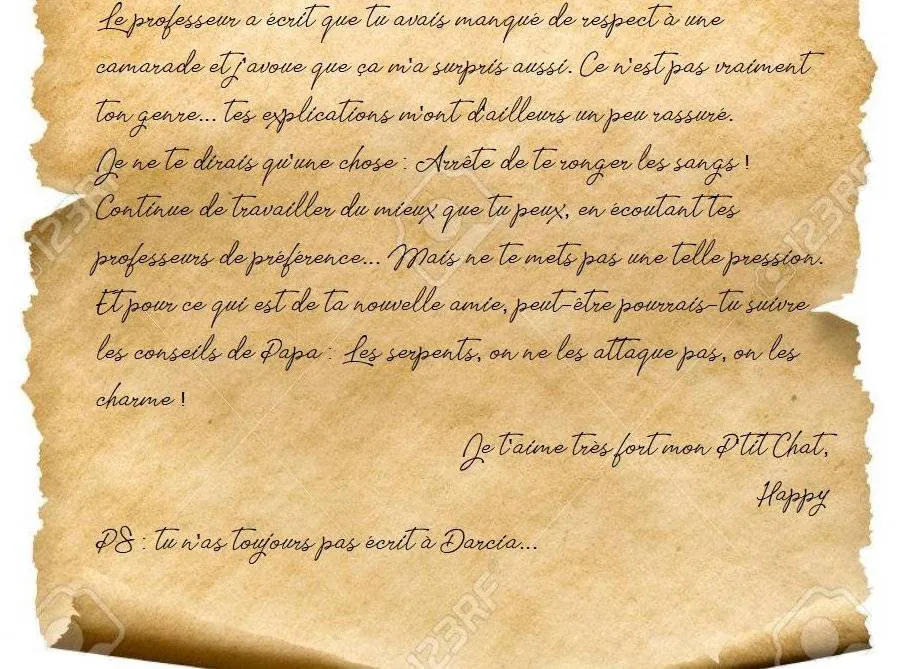 Le professeur a écrit que tu avais manqué de respect à une
camarade et j'avoue que ça m'a surpris aussi. Ce n'est pas vraiment
ton genre... tes explications m'ont d'ailleurs un peu rassuré.
Je ne te dirais qu'une chose : Arrête de te ronger les sangs !
Continue de travailler du mieux que tu peux, en écoutant tes
professeurs de préférence... Mais ne te mets pas une telle pression.
Et pour ce qui est de ta nouvelle amie, peut-être pourrais-tu suivre
les conseils de Papa : Les serpents, on ne les attaque pas, on les
charme !
Je t'aime très fort mon P'tit Chat,
Happy
PS : tu n'as toujours pas écrit à Darcia...
123RF
123RF
123RF
123RF